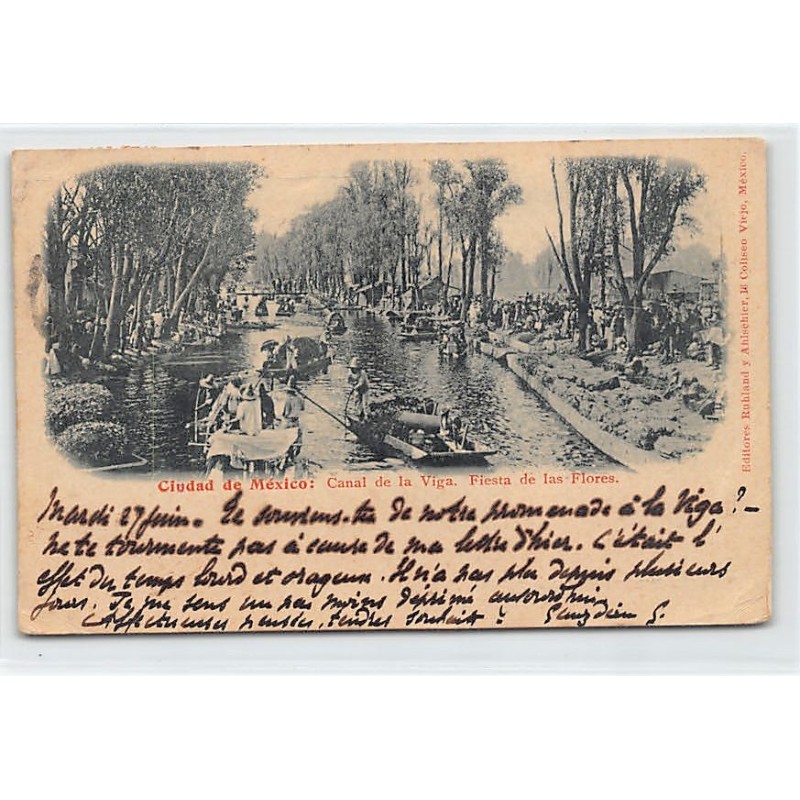 Ciudad de México: Canal de la Viga. Fiesta de las Flores.
Editores Ruhland y Ahlschier, 16 Coliseo Viejo, México.
Mardi 27 juin. Te souviens-tu de notre promenade à la Viga? -
ne te tourmente pas à cause de ma lettre d'hier. C'était l'
effet du temps lourd et orageux. Il n'a pas plu depuis plusieurs
jours. Je me sens un pas moins déprimé aujourd'hui
Affectueuses pensées, tendres souhaits